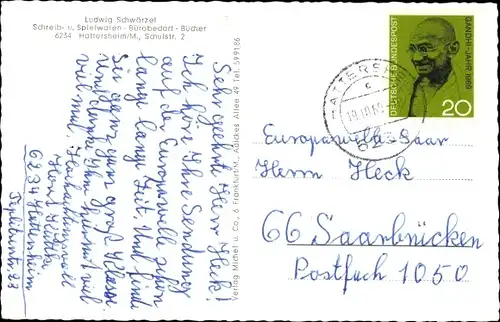 Ludwig Schwärzel
Schreib- u. Spielwaren - Bürobedarf - Bücher
6234 Hattersheim/M., Schulstr. 2
Sehr geehrter Herr Heck!
Ich höre Ihre Sendung
auf der Europawelle schon
lange lange Zeit. Und finde
Sie ganz ganz groß Klasse.
viel mal.
Hochachtungsvoll
Horst
6234 Hattersheim
Verlag Michel u. Co., 6 Frankfurt/M., Adickes Allee 49 Tel. 599186
DEUTSCHE BUNDESPOST
GANDHI-JAHR 1969
20
Europawelle Saar
Herrn Heck
66 Saarbrücken
Postfach 1050